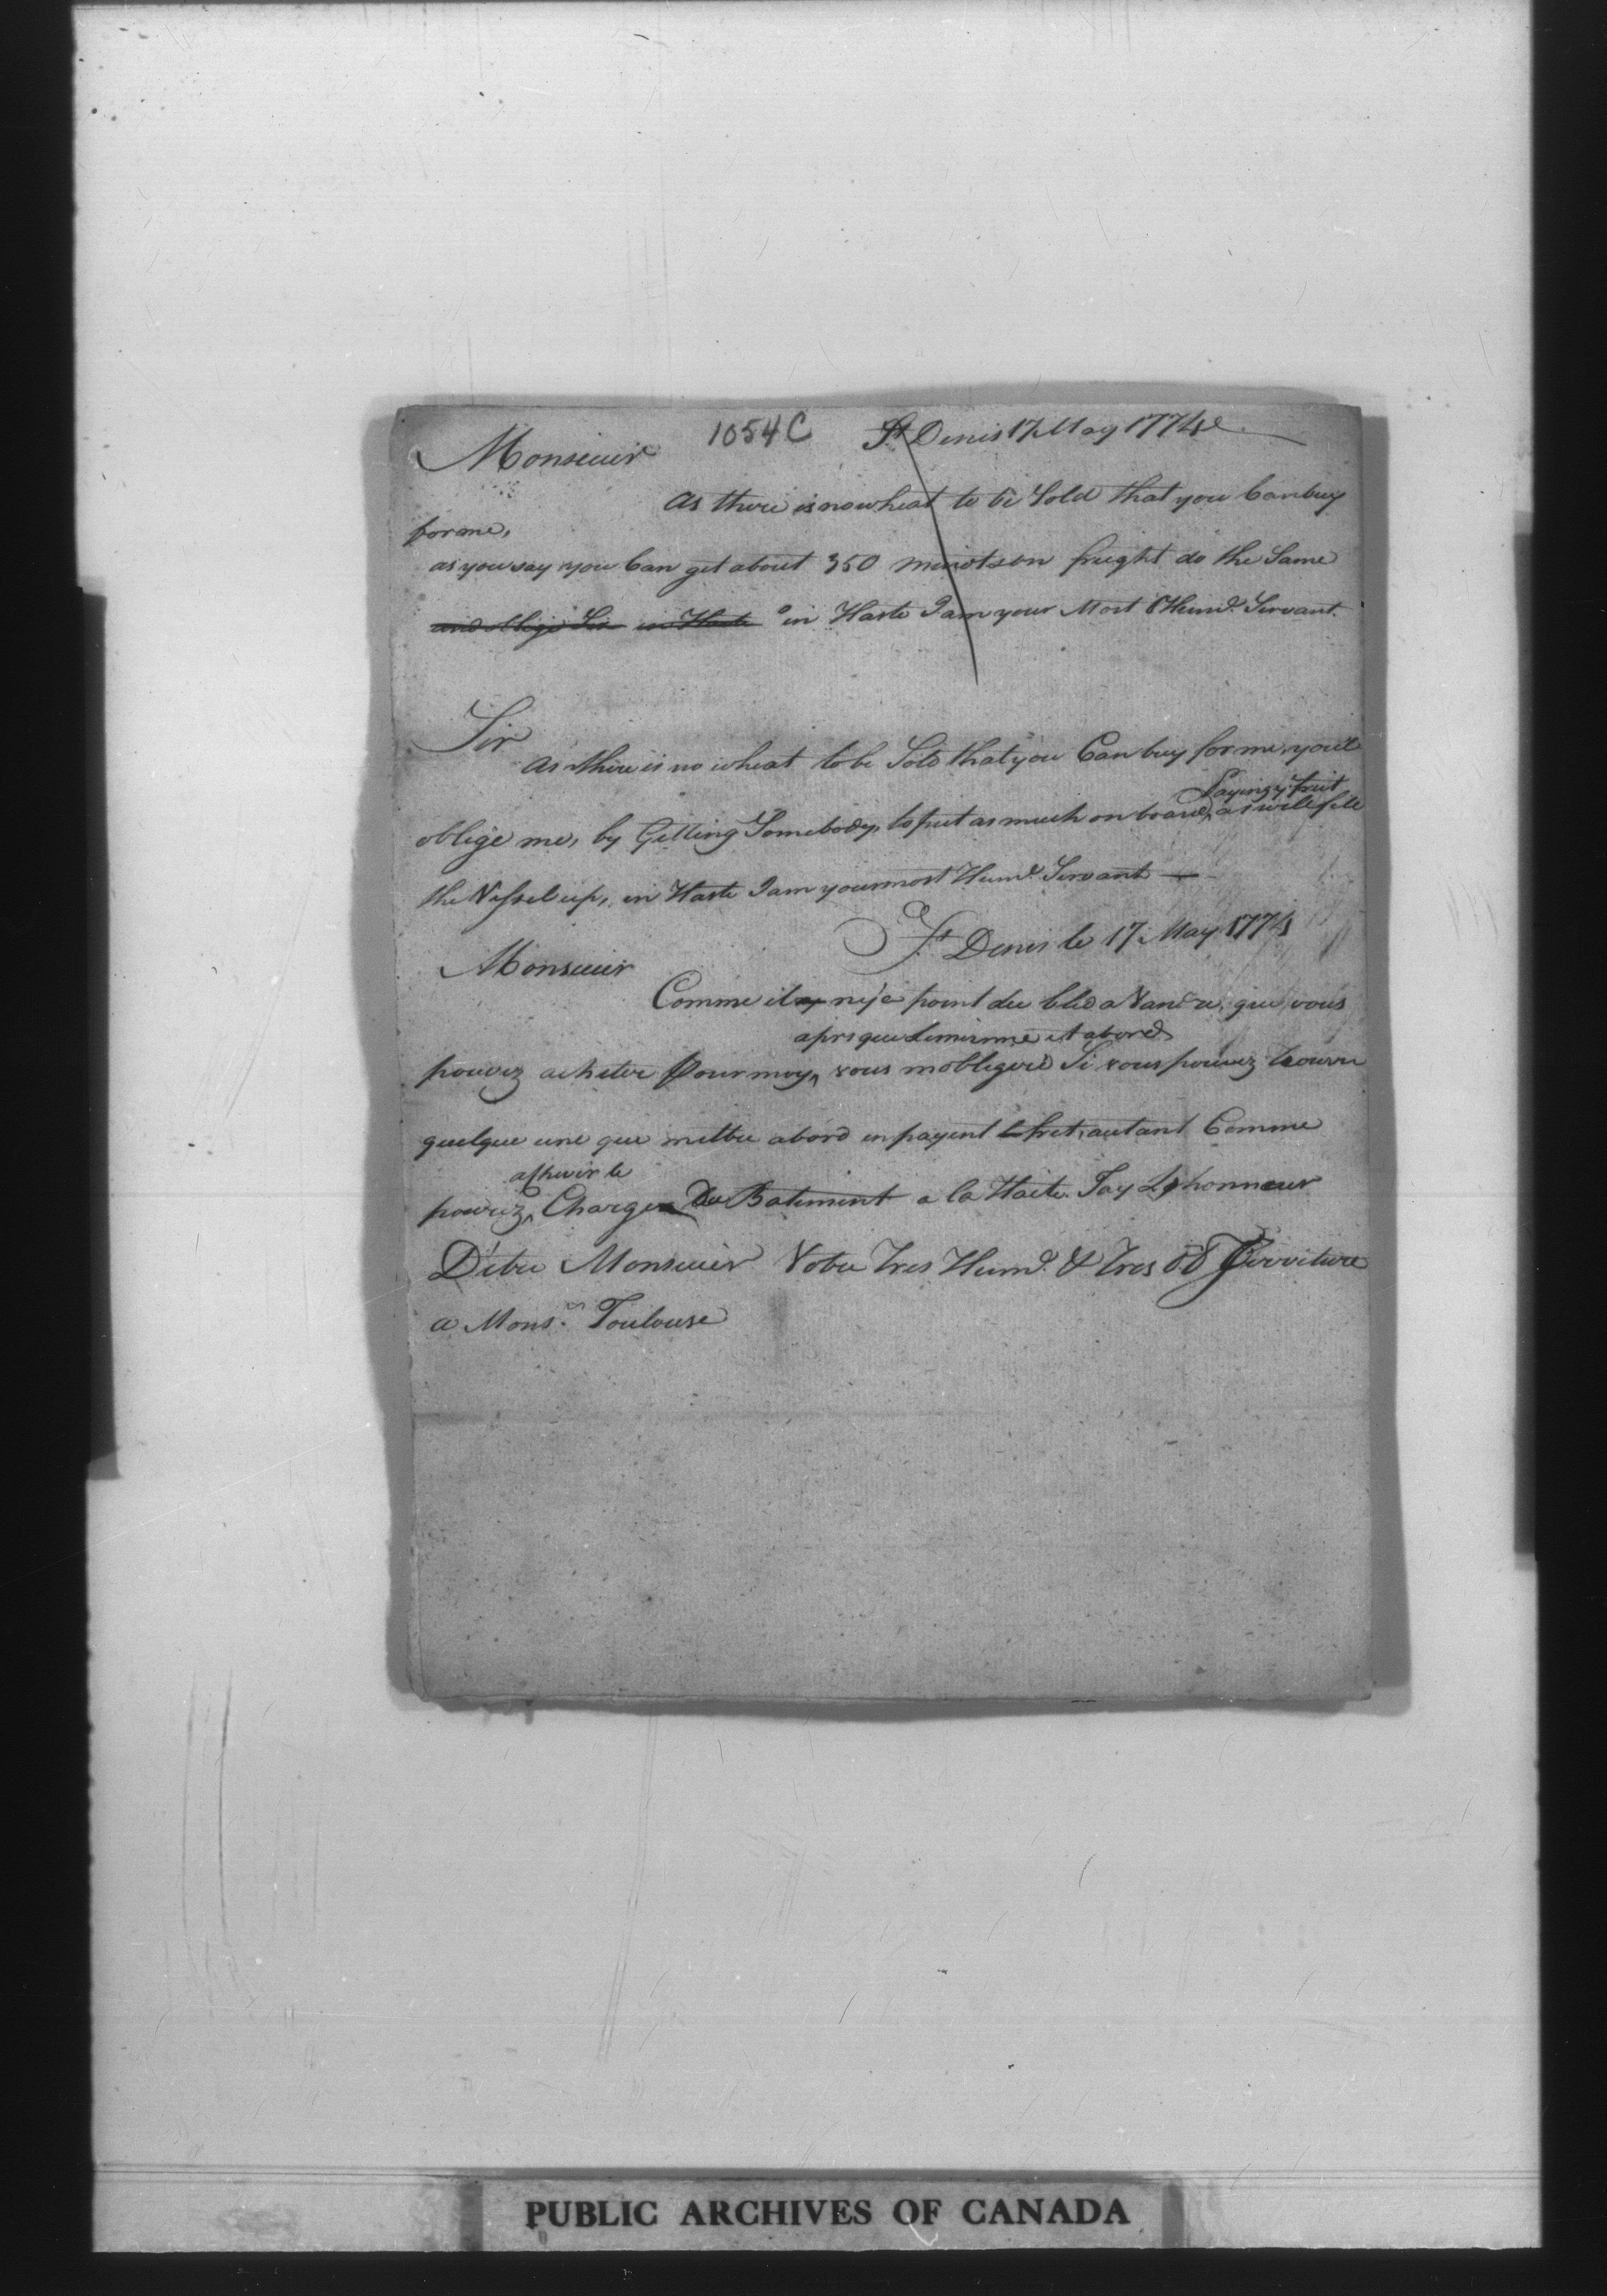 1054 C St Denis 17 May 1774
Monsieuir
As there is no wheat to be Sold that you Can buy
for me,
as you say you Can get about 350 minots on freight do the Same
and oblige Sir in Haste in Haste I am your Most Humd. Servant.
Sir
As there is no wheat to be Sold that you Can buy for me, you'l
paying ye freit
oblige me, by Getting Somebody, to put as much on board, as will fill
the Vessel up, in Haste I am your most Humd. Servant
St Denis le 17 May 1774
Monsieuir
Comme il ny'e point du bled a Vandre, que vous
apres que Lemienne et abord
pouvez acheter pour moy, vous mobligere Si vous pouvez trouvre
quelque une que mettre abord en payent le fret, autant Comme
achevir le
pouvez, Charger Batiment a la Haite. Jay Lhonneur
D'étre Monsieuir Votre Tres Humd. & Tres Ob Serviture
a Monsr. Toulouse
PUBLIC ARCHIVES OF CANADA